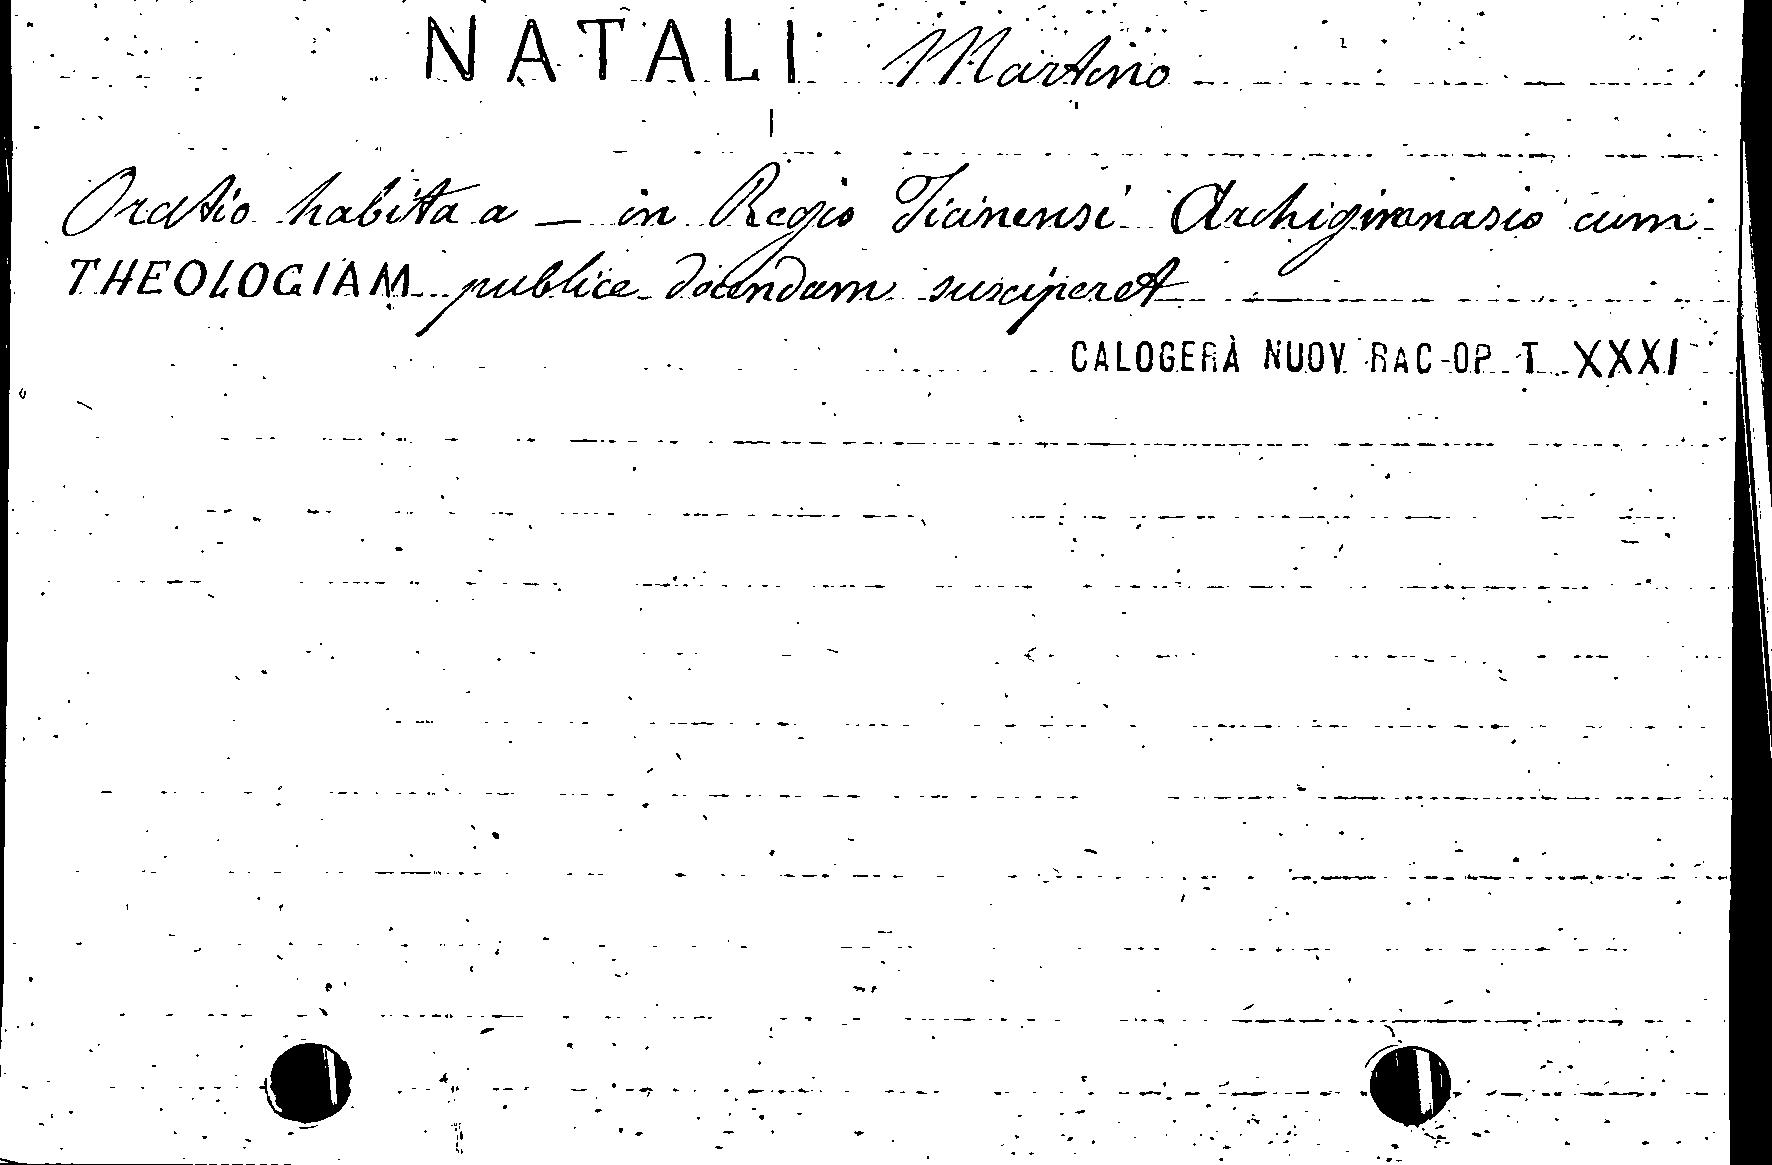 NATALI Martino
Oratio habita a — in Regio Ticinensi Archigimnasio cum
THEOLOGIAM publice docendam susciperet
CALOGERÀ NUOV RAC-OP T XXXI